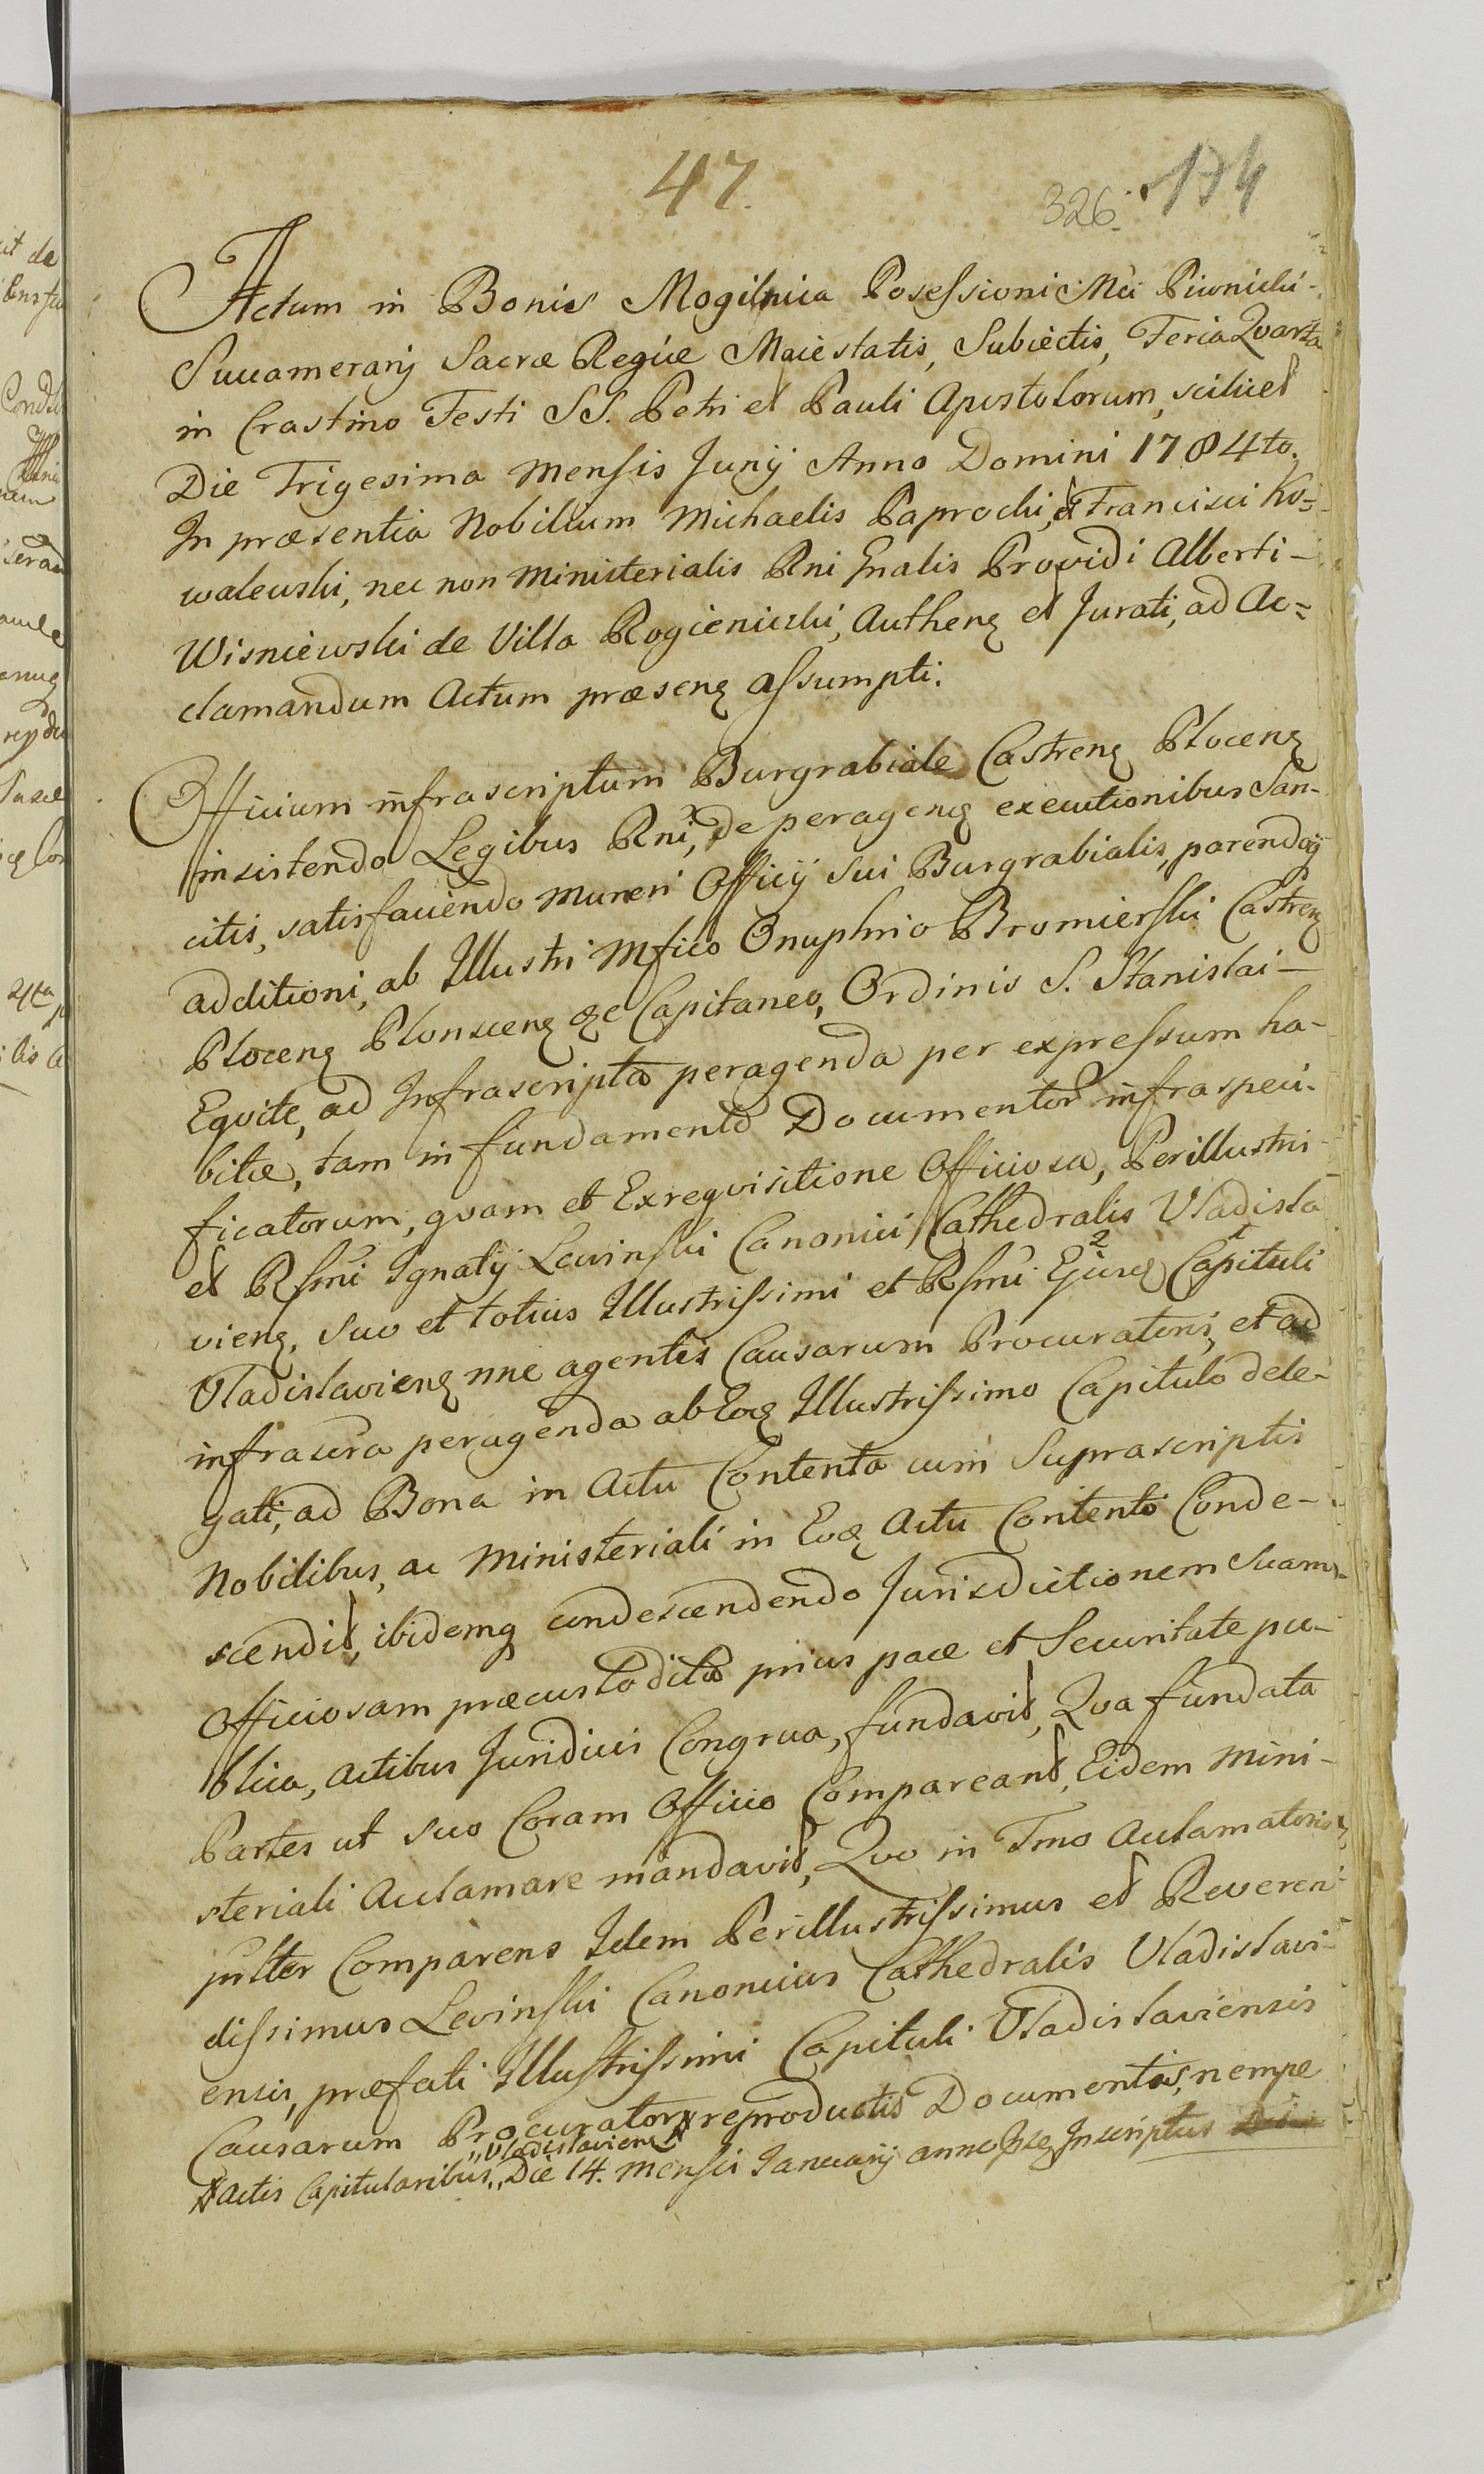 47.
326.
174
Actum in Bonis Mogilnica Posessioni Mci Piwnicki
Succamerarij Sacræ Regiæ Maiestatis, Subiectis, Feria Qvarta
in Crastino Festi SS. Petri et Pauli Apostolorum, scilicet
Die Trigesima Mensis Junij Anno Domini 1784to.
In præsentia Nobilium Michaelis Paprocki, et Francisci Ko=
walewski, nec non Ministerialis Rni Gnalis Providi Alberti
Wisniewski de Villa Rogienicski, Authenq et Jurati, ad Ac=
clamandum Actum præsenq assumpti.
Officium infrascriptum Burgrabiale Castrenq Plocenq
insistendo Legibus Rni, de peragenq executionibus San-
citis, satisfaciendo muneri Officij sui Burgrabialis, parendoq
additioni, ab Illustri Mfico Onuphrio Bromierski Castrenq
Plocenq Plonscenq qe Capitaneo, Ordinis S. Stanislai
Eqvite, ad Infrascripta peragenda per expressum ha-
bitæ, tam in fundamento Documentor infraspeci-
ficatorum, qvam et Exreqvisitione Officiosa, Perillustri
et Rsmi Ignatij Lewinski Canonici Cathedralis Vladisla
vienq, suo et totius Illustrissimi et Rsmi Ejusq 2 Capituli 1
Vladislavienq nne agentis Causarum Procuratoris, et ad
infrascra peragenda ab Eoq Illustrissimo Capitulo dele-
gati, ad Bona in Actu Contenta cum Suprascriptis
Nobilibus, ac Ministeriali in Eoq Actu Contento Conde-
scendit, ibidemq condescendendo Jurisdictionem suam
Officiosam præcustodita prius pace et Securitate pu-
blica, actibus Juridicis Congrua, fundavit, Qva fundata
Partes ut suo Coram Officio Compareant, Eidem Mini-
steriali Acclamare mandavit, Qvo in Tmo Acclamationis
psltter Comparens Idem Perillustrissimus et Reveren
dissimus Lewinski Canonicus Cathedralis Vladislavi-
ensis, præfati Illustrissimi Capituli Vladislaviensis
Causarum Procurator reproductis Documentis, nempe
Vladislavienq
Actis Capitularibus, Die 14. Mensis Januarij anno Inscriptus